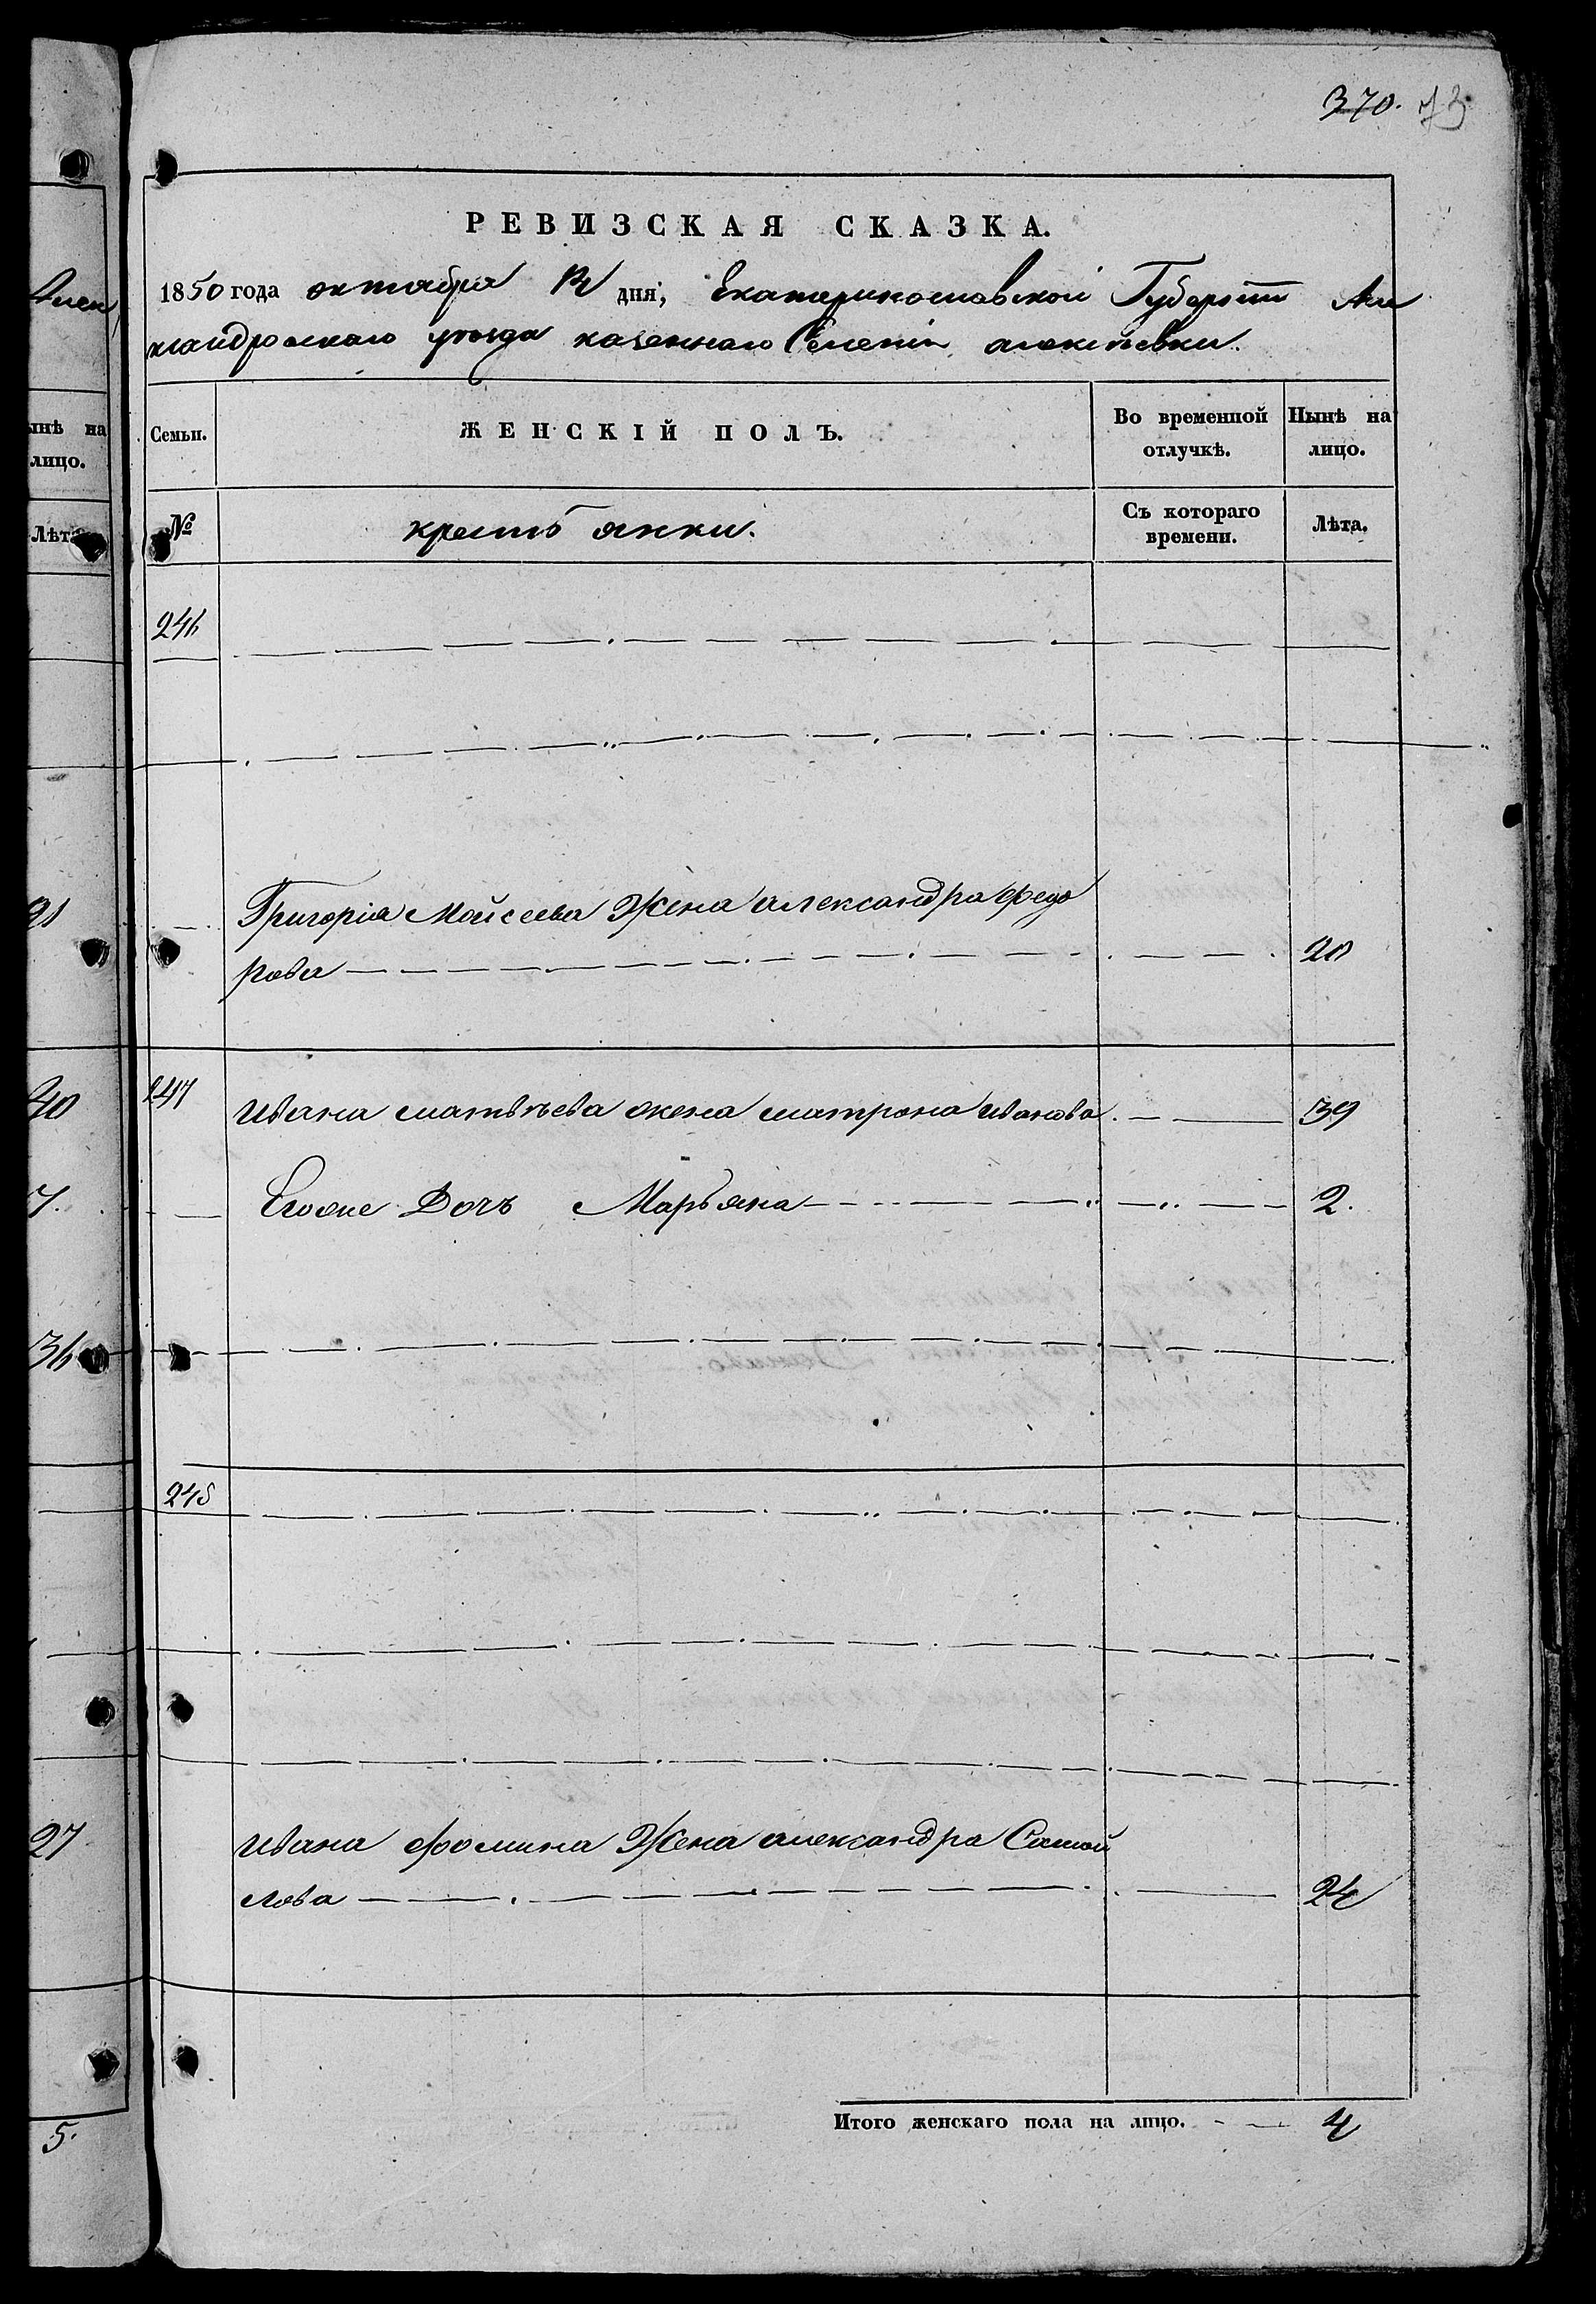 370. 73
РЕВИЗСКАЯ СКАЗКА.
1850 года октября дня; Екатеринославской Губернии Але
ксандровскаго уезда казеннаго Селенія алексеевки.
Семьи.
ЖЕНСКІЙ ПОЛЪ.
Во временной отлучкѣ.
Нынѣ на лицо.
№
крестьянки.
Съ котораго времени.
Лѣта.
246
Григорія Моисеева Жена александра Федо
рова 20
247 Ивана матвѣева жена матрона иванова 39
Егоже Дочь Марьяна 2.
248
Ивана фомина Жена александра Самой
лова 24
Итого женскаго пола на лицо. 4
инѣ на
лицо.
Лѣта
21
40
7.
36
27
5.